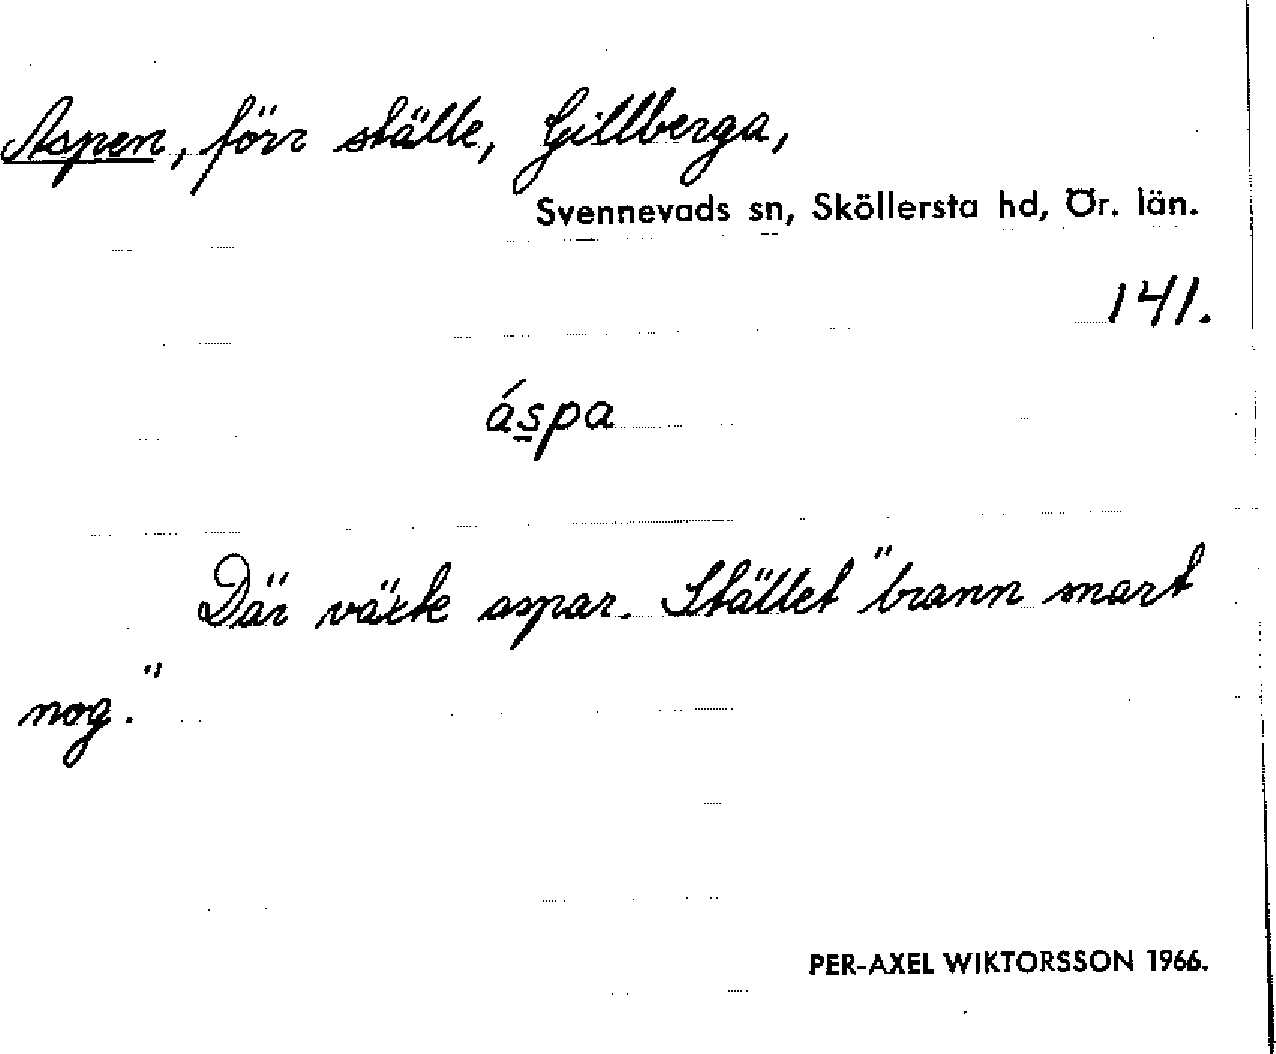 Aspen, förr ställe, Gillberga,
Svennevads sn, Sköllersta hd, Ör. län.
141.
áspa
Där växte aspar. Stället "brann snart
nog."
PER-AXEL WIKTORSSON 1966.